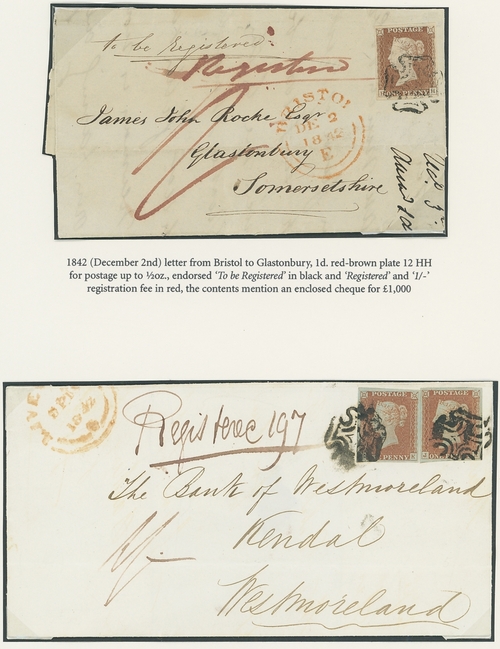 to be Registered
Registered
POSTAGE
ONE PENNY
BRISTOL
DE 2
1842
E
James John Rocke Esqr
Glastonbury
Somersetshire
1842 (December 2nd) letter from Bristol to Glastonbury, 1d. red-brown plate 12 HH
for postage up to ½oz., endorsed ‘To be Registered’ in black and ‘Registered’ and ‘1/-’
registration fee in red, the contents mention an enclosed cheque for £1,000
POSTAGE
POSTAGE
PENNY
Registered 197
The Bank of Westmoreland
Kendal
Westmoreland
1/-